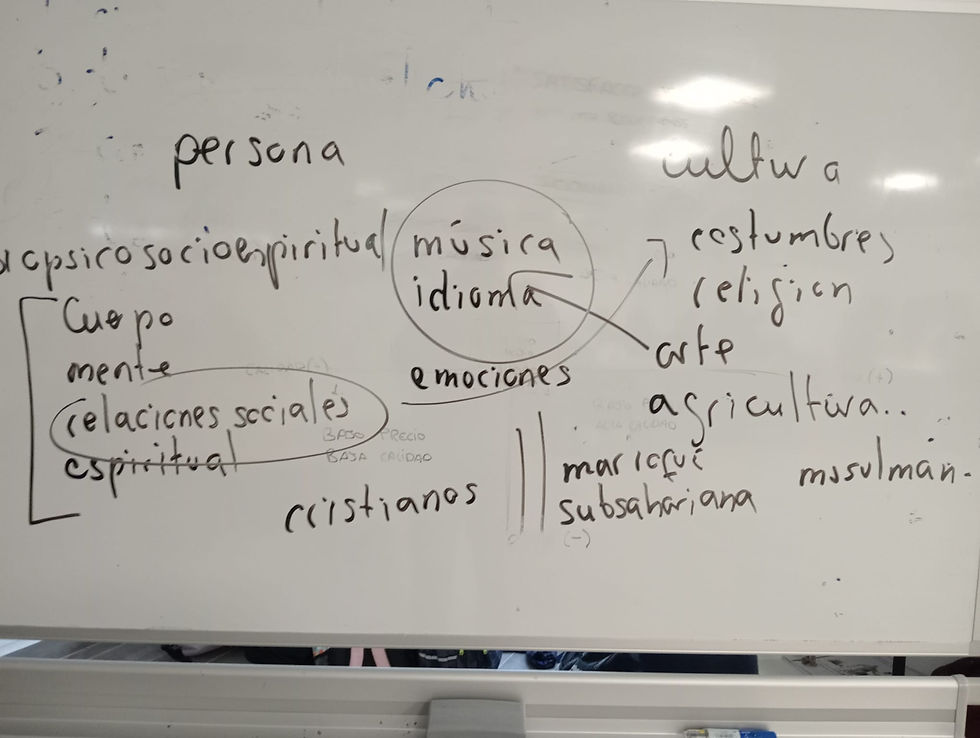 persona
cultura
psicosocioespiritual
música
idioma
costumbres
religion
Cuepo
mente
emociones
arte
relaciones sociales
agricultura..
BAJO PRECIO
BAJA CALIDAD
espiritual
musulmán.
cristianos
subsahariana
(-)
(+)